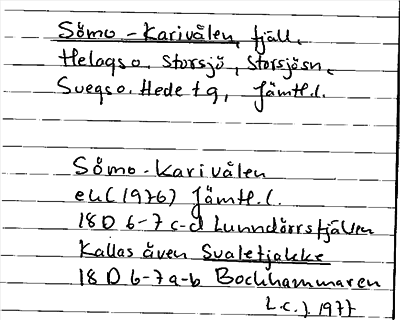 Sömo-Karivålen, fjäll.
Helags o. Storsjö, Storsjösn.
Svegs o. Hede tg, Jämtl.l.
Sömo-Karivålen
ek (1976) Jämtl.l.
18 D 6-7 c-d Lunndörrsfjällen
Kallas även Svaletjakke
18 D 6-7 a-b Bockhammaren
L.C.J. 1977